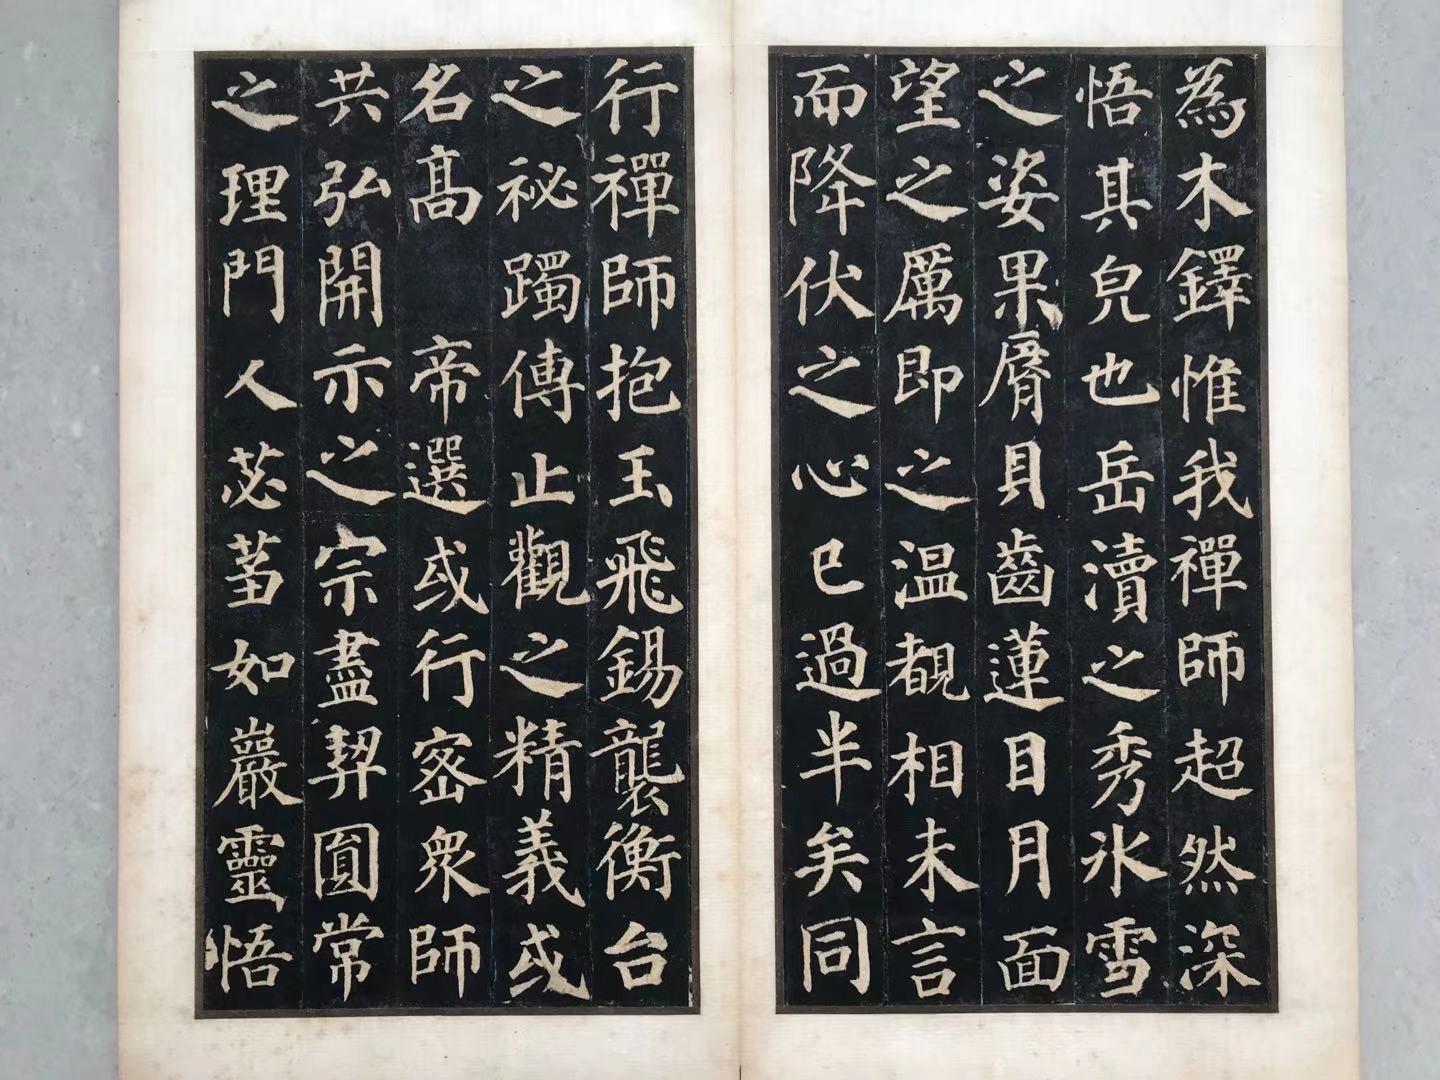 為木鐸惟我禪師超然深
悟其皃也岳瀆之秀氷雪
之姿果脣貝齒蓮目月面
望之厲即之温覩相未言
而降伏之心已過半矣同
行禪師抱玉飛錫襲衡台
之祕躅傳止觀之精義或
名高 帝選或行密衆師
共弘開示之宗盡契圓常
之理門人苾蒭如巖靈悟